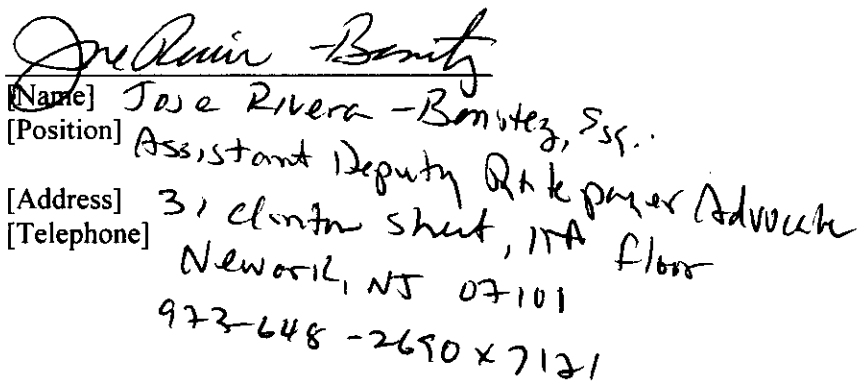 Jose Rivera - Benitez
[Name] Jose Rivera - Benitez, Esq.
[Position] Assistant Deputy Ratepayer Advocate
[Address] 31 Clinton Street, 11th floor
[Telephone]
Newark, NJ 07101
973-648-2690 x 7121